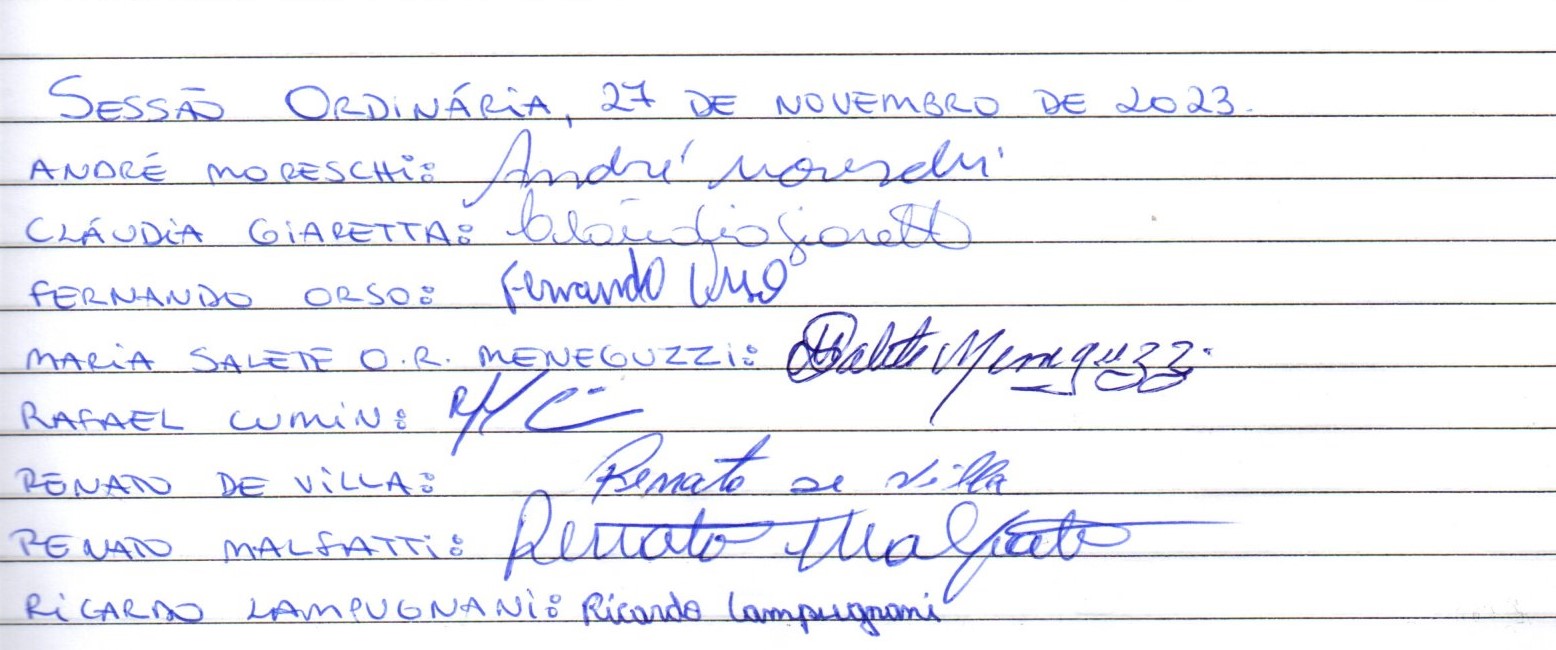 SESSÃO ORDINÁRIA, 27 DE NOVEMBRO DE 2023.
ANDRÉ MORESCHI: André Moreschi
CLÁUDIA GIARETTA: Cláudia Giaretta
FERNANDO ORSO: Fernando Orso
MARIA SALETE O.R. MENEGUZZI: MSalete Meneguzzi
RAFAEL CUMIN:
RENATO DE VILLA: Renato de Villa
RENATO MALFATTI: Renato Malfatti
RICARDO LAMPUGNANI: Ricardo Lampugnani